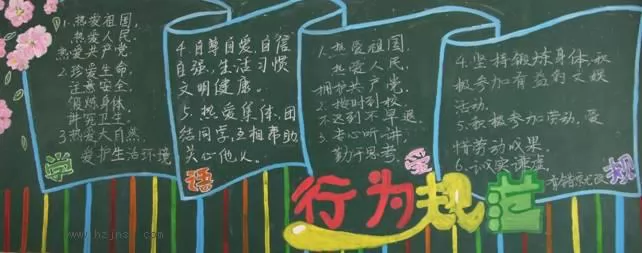 1.热爱祖国,
热爱人民,
热爱共产党
2.珍爱生命,
注意安全,
锻炼身体,
讲究卫生
3.热爱大自然
爱护生活环境
4.自尊自爱,自信
自强,生活习惯
文明健康。
5.热爱集体,团
结同学,互相帮助
关心他人。
1.热爱祖国,
热爱人民,
拥护共产党。
2.按时到校,
不迟到不早退
3.专心听讲,
勤于思考,
4.坚持锻炼身体,积
极参加有益的文娱
活动。
5.积极参加劳动,爱
惜劳动成果。
6.诚实谦虚
学
语
受
规
行为规范
www.hzjns